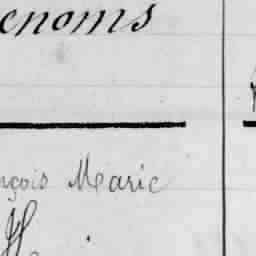 enoms
nçois Marie